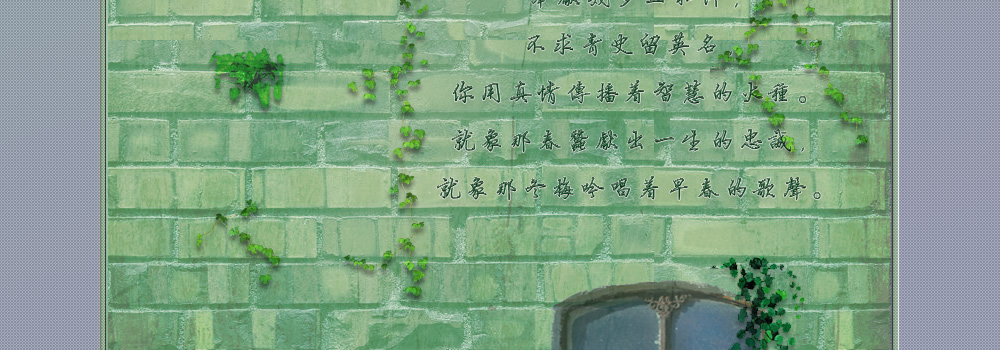 不求青史留英名
你用真情傳播着智慧的火種。
就象那春蠶獻出一生的忠誠，
就象那冬梅吟唱着早春的歌聲。